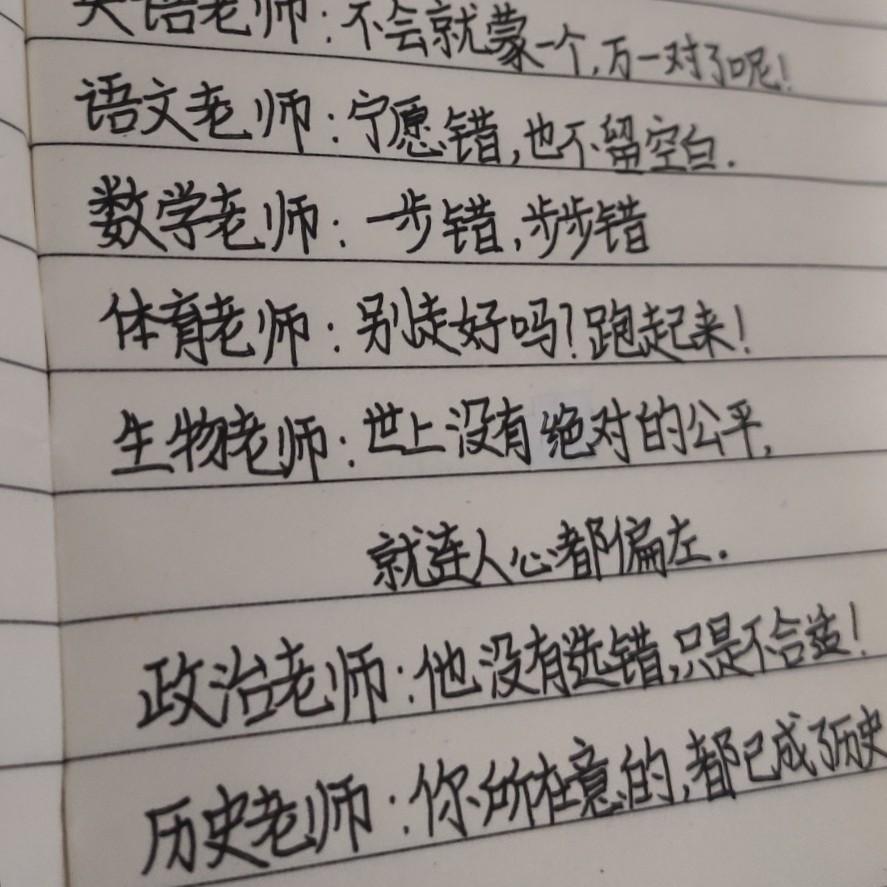 英语老师:不会就蒙一个,万一对了呢!
语文老师:宁愿错,也不留空白.
数学老师:一步错,步步错
体育老师:别走好吗?跑起来!
生物老师:世上没有绝对的公平,
就连人心都偏左.
政治老师:他没有选错,只是不合适!
历史老师:你所在意的,都已成了历史